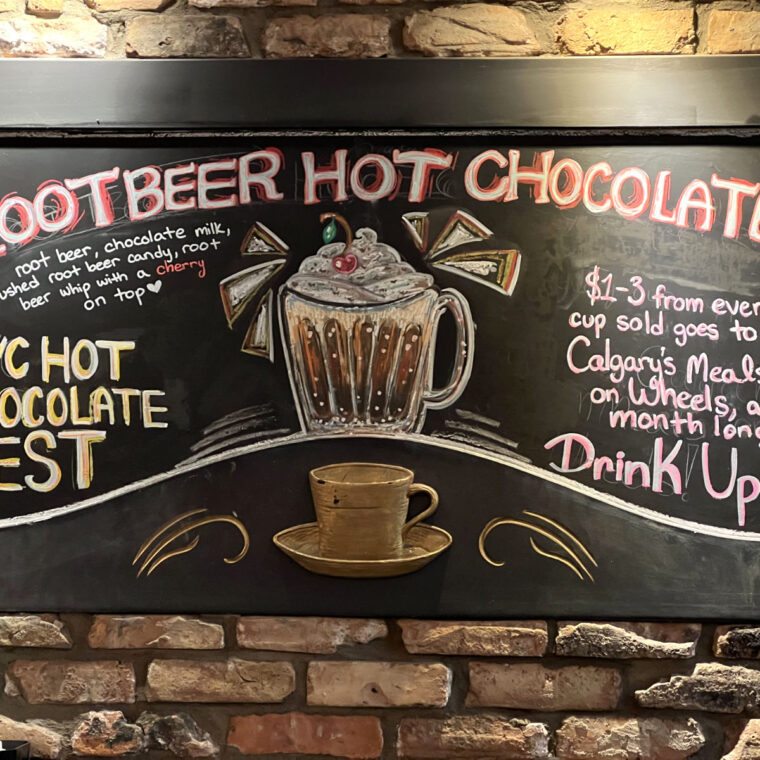 ROOTBEER HOT CHOCOLATE
root beer, chocolate milk,
ushed root beer candy, root
beer whip with a cherry
on top
YC HOT
OCOLATE
EST
$1-3 from ever
cup sold goes to
Calgary's Meals
on Wheels, a
month long
Drink Up